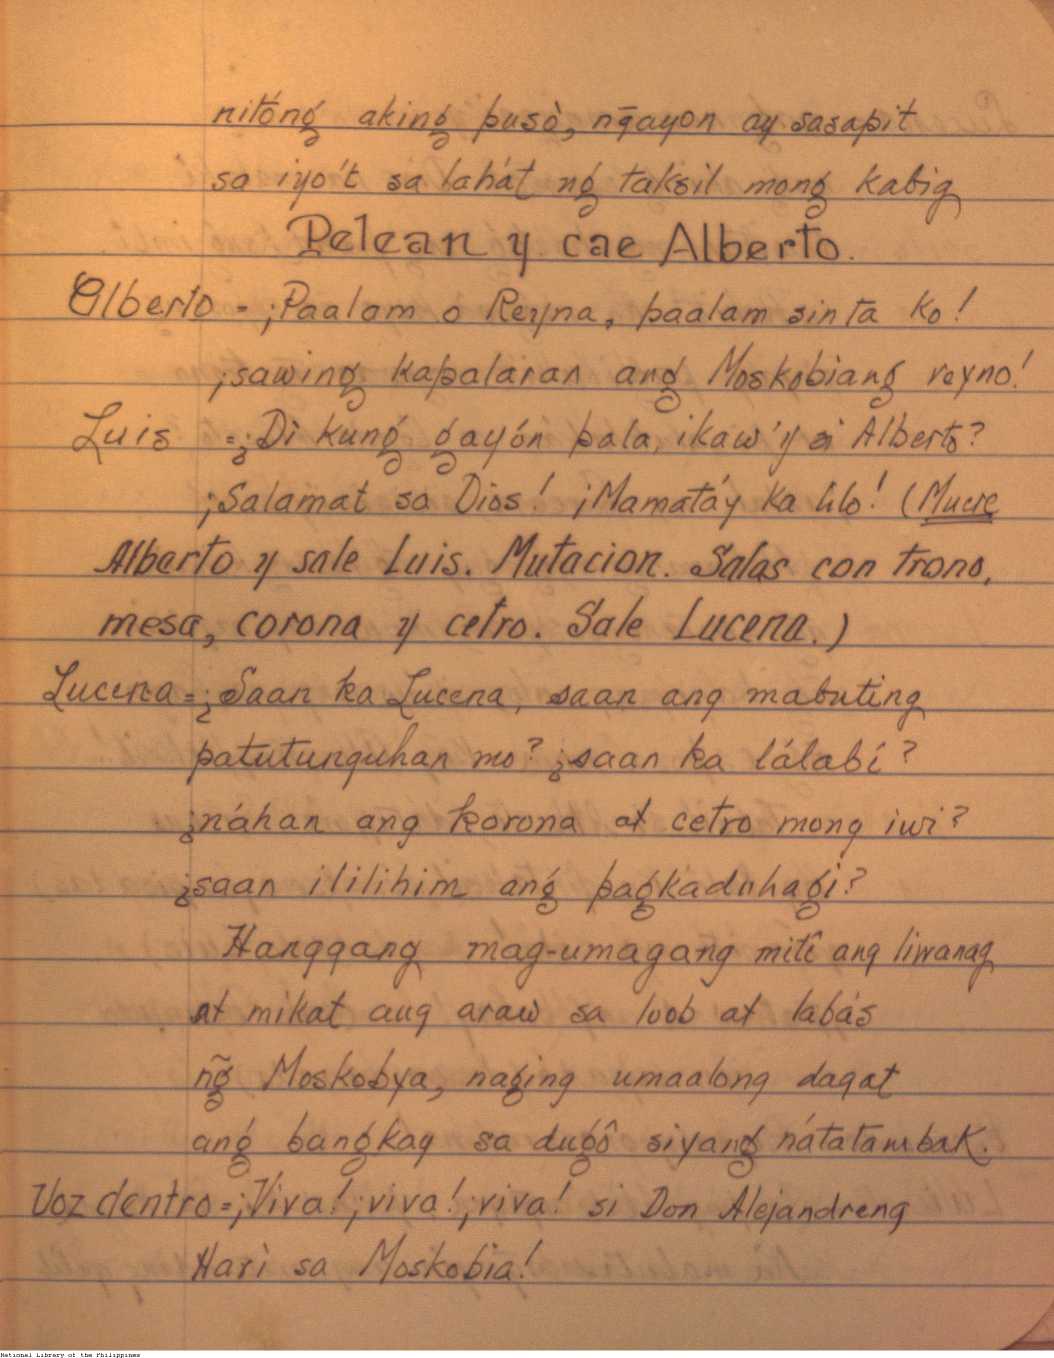 nitóng aking pusò, ng̃ayon ay sasapit
sa iyo't sa lahát ng taksil mong kabig
Pelean y cae Alberto.
Alberto = ¡Paalam o Reyna, paalam sinta ko!
¡sawing kapalaran ang Moskobiang reyno!
Luis = ¿Di kung gayón pala, ikaw'y si Alberto?
¡Salamat sa Dios! ¡Mamatáy ka lilo! (Muere
Alberto y sale Luis. Mutacion. Salas con trono,
mesa, corona y cetro. Sale Lucena.)
Lucena = ¿Saan ka Lucena, saan ang mabuting
patutunguhan mo? ¿saan ka lálabí?
¿náhan ang korona at cetro mong iwi?
¿saan ililihim ang pagkaduhagi?
Hanggang mag-umagang mitî ang liwanag
at mikat ang araw sa loob at labás
ng̃ Moskobya, naging umaalong dagat
ang bangkay sa dugô siyang nátatambak.
Voz dentro = ¡Viva! ¡viva! ¡viva! si Don Alejandreng
Hari sa Moskobia!
National Library of the Philippines